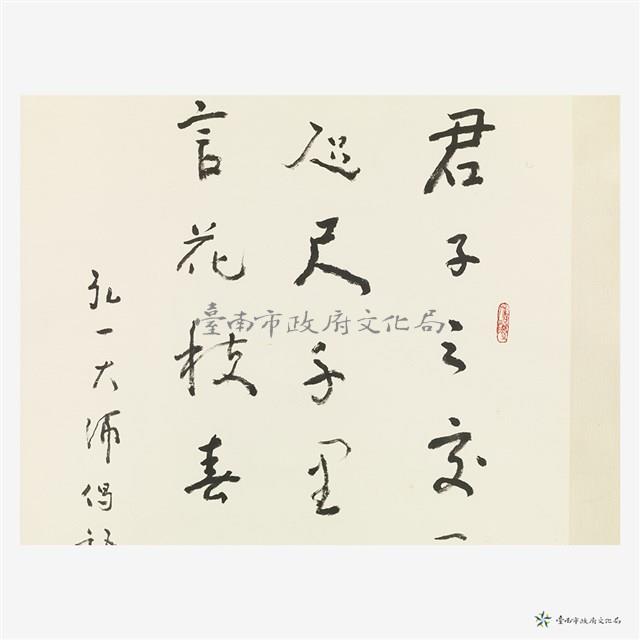 君子之交
咫尺千里
言花枝春
弘一大師偈
臺南市政府文化局
臺南市政府文化局